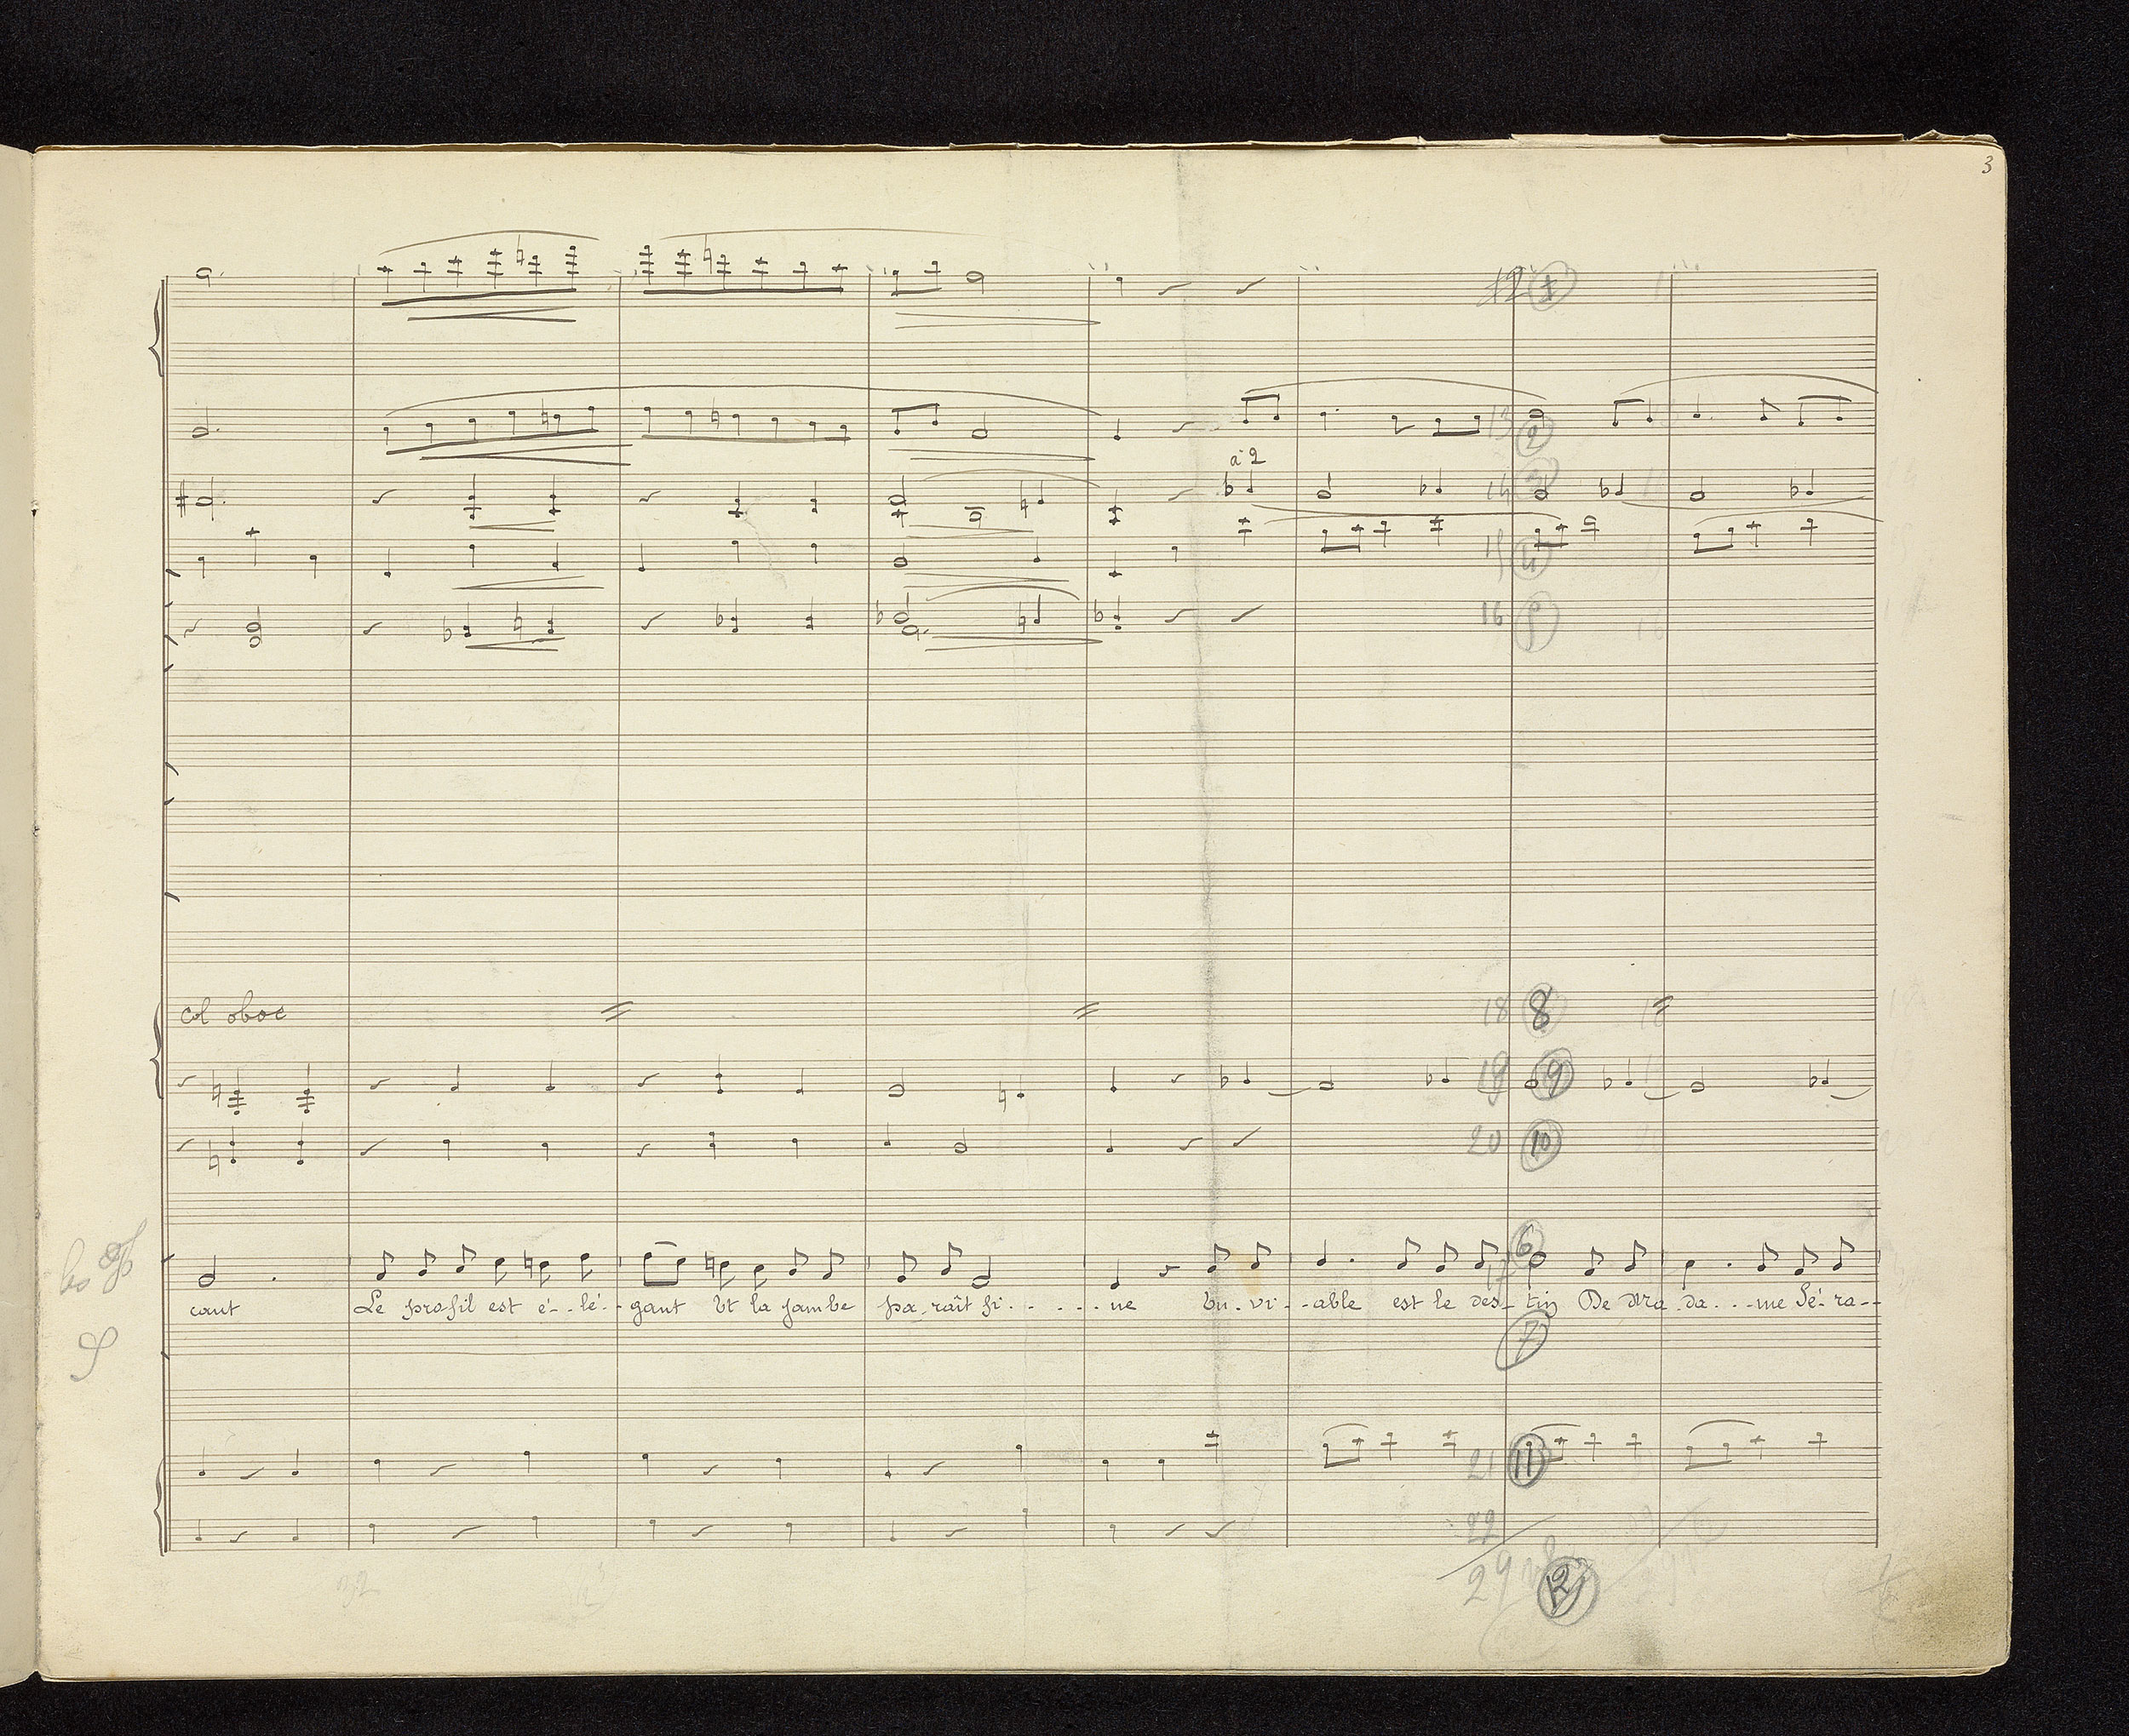 3
12 1
13 2
à 2
14 3
15 4
16 5
col oboe
18 8
19 9
20 10
6
17
cant Le profil est é- - lé- - gant Et la jambe pa- raît fi- - - - - ne En- vi- - able est le des- tin De Ma- da- - - me Sé- ra- -
7
21 11
22
12